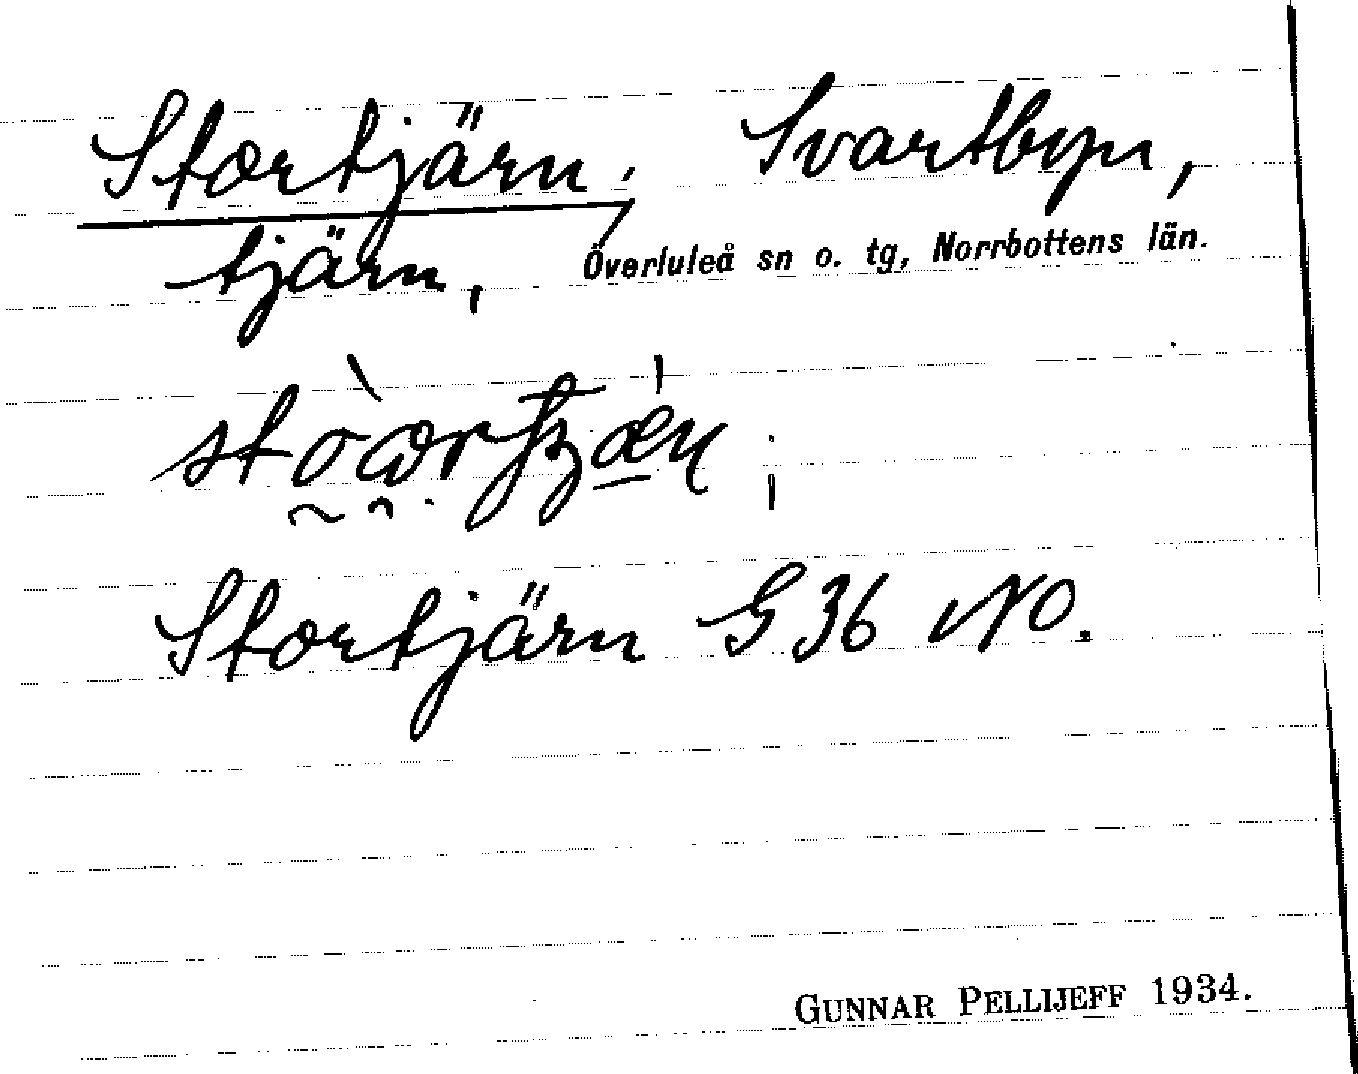 Stortjärn, Svartbyn,
tjärn, Överluleå sn o. tg, Norrbottens län.
Stortjärn G 36 NO.
GUNNAR PELLIJEFF 1934.